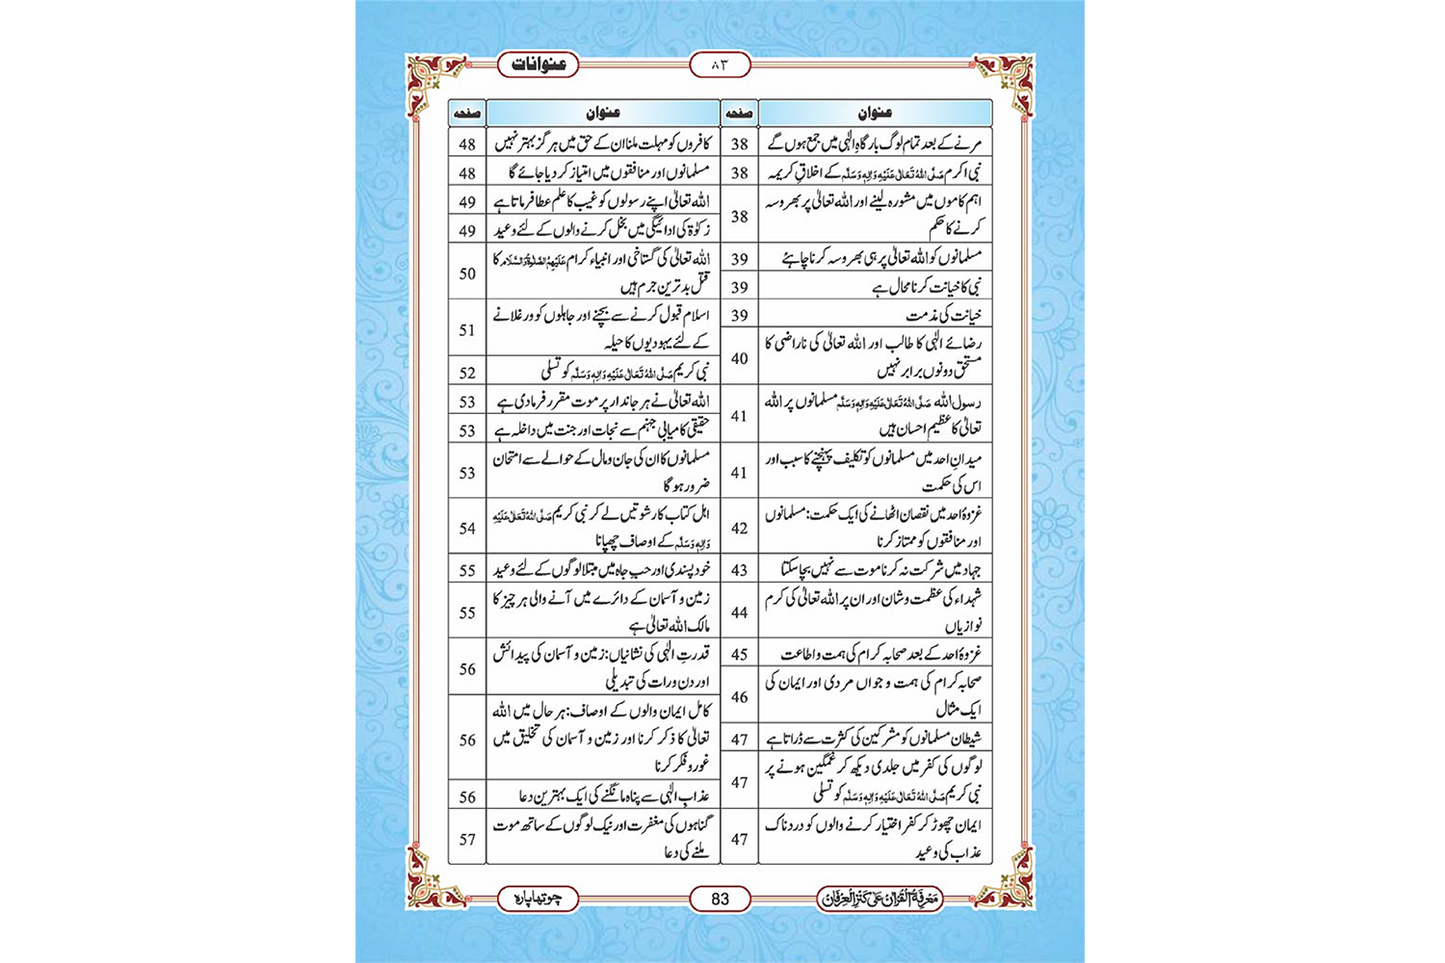 عنوانات
۸۳
عنوان
صفحہ
مرنے کے بعد تمام لوگ بارگاہِ الٰہی میں جمع ہوں گے
38
نبی اکرم صَلَّی اللہُ تَعَالٰی عَلَیْہِ وَاٰلِہٖ وَسَلَّم کے اخلاقِ کریمہ
38
اہم کاموں میں مشورہ لینے اور اللہ تعالیٰ پر بھروسہ
کرنے کا حکم
38
مسلمانوں کو اللہ تعالیٰ پر ہی بھروسہ کرنا چاہئے
39
نبی کا خیانت کرنا محال ہے
39
خیانت کی مذمت
39
رضائے الٰہی کا طالب اور اللہ تعالیٰ کی ناراضی کا
مستحق دونوں برابر نہیں
40
رسول اللہ صَلَّی اللہُ تَعَالٰی عَلَیْہِ وَاٰلِہٖ وَسَلَّم مسلمانوں پر اللہ
تعالیٰ کا عظیم احسان ہیں
41
میدانِ احد میں مسلمانوں کو تکلیف پہنچنے کا سبب اور
اس کی حکمت
41
غزوۂ احد میں نقصان اٹھانے کی ایک حکمت: مسلمانوں
اور منافقوں کو ممتاز کرنا
42
جہاد میں شرکت نہ کرنا موت سے نہیں بچا سکتا
43
شہداء کی عظمت و شان اور ان پر اللہ تعالیٰ کی کرم
نوازیاں
44
غزوۂ احد کے بعد صحابہ کرام کی ہمت و اطاعت
45
صحابہ کرام کی ہمت و جواں مردی اور ایمان کی
ایک مثال
46
شیطان مسلمانوں کو مشرکین کی کثرت سے ڈراتا ہے
47
لوگوں کی کفر میں جلدی دیکھ کر غمگین ہونے پر
نبی کریم صَلَّی اللہُ تَعَالٰی عَلَیْہِ وَاٰلِہٖ وَسَلَّم کو تسلی
47
ایمان چھوڑ کر کفر اختیار کرنے والوں کو دردناک
عذاب کی وعید
47
عنوان
صفحہ
کافروں کو مہلت ملنا ان کے حق میں ہرگز بہتر نہیں
48
مسلمانوں اور منافقوں میں امتیاز کر دیا جائے گا
48
اللہ تعالیٰ اپنے رسولوں کو غیب کا علم عطا فرماتا ہے
49
زکوٰۃ کی ادائیگی میں بخل کرنے والوں کے لئے وعید
49
اللہ تعالیٰ کی گستاخی اور انبیاء کرام عَلَیْہِمُ الصَّلٰوۃُ وَالسَّلَام کا
قتل بدترین جرم ہیں
50
اسلام قبول کرنے سے بچنے اور جاہلوں کو ورغلانے
کے لئے یہودیوں کا حیلہ
51
نبی کریم صَلَّی اللہُ تَعَالٰی عَلَیْہِ وَاٰلِہٖ وَسَلَّم کو تسلی
52
اللہ تعالیٰ نے ہر جاندار پر موت مقرر فرما دی ہے
53
حقیقی کامیابی جہنم سے نجات اور جنت میں داخلہ ہے
53
مسلمانوں کا ان کی جان و مال کے حوالے سے امتحان
ضرور ہو گا
53
اہل کتاب کا رشوتیں لے کر نبی کریم صَلَّی اللہُ تَعَالٰی عَلَیْہِ
وَاٰلِہٖ وَسَلَّم کے اوصاف چھپانا
54
خود پسندی اور حب جاہ میں مبتلا لوگوں کے لئے وعید
55
زمین و آسمان کے دائرے میں آنے والی ہر چیز کا
مالک اللہ تعالیٰ ہے
55
قدرتِ الٰہی کی نشانیاں: زمین و آسمان کی پیدائش
اور دن و رات کی تبدیلی
56
کامل ایمان والوں کے اوصاف: ہر حال میں اللہ
تعالیٰ کا ذکر کرنا اور زمین و آسمان کی تخلیق میں
غور و فکر کرنا
56
عذابِ الٰہی سے پناہ مانگنے کی ایک بہترین دعا
56
گناہوں کی مغفرت اور نیک لوگوں کے ساتھ موت
ملنے کی دعا
57
مَعْرِفَۃُ الْقُرْاٰن عَلٰی کَنْزُ الْعِرْفَان
83
چوتھا پارہ